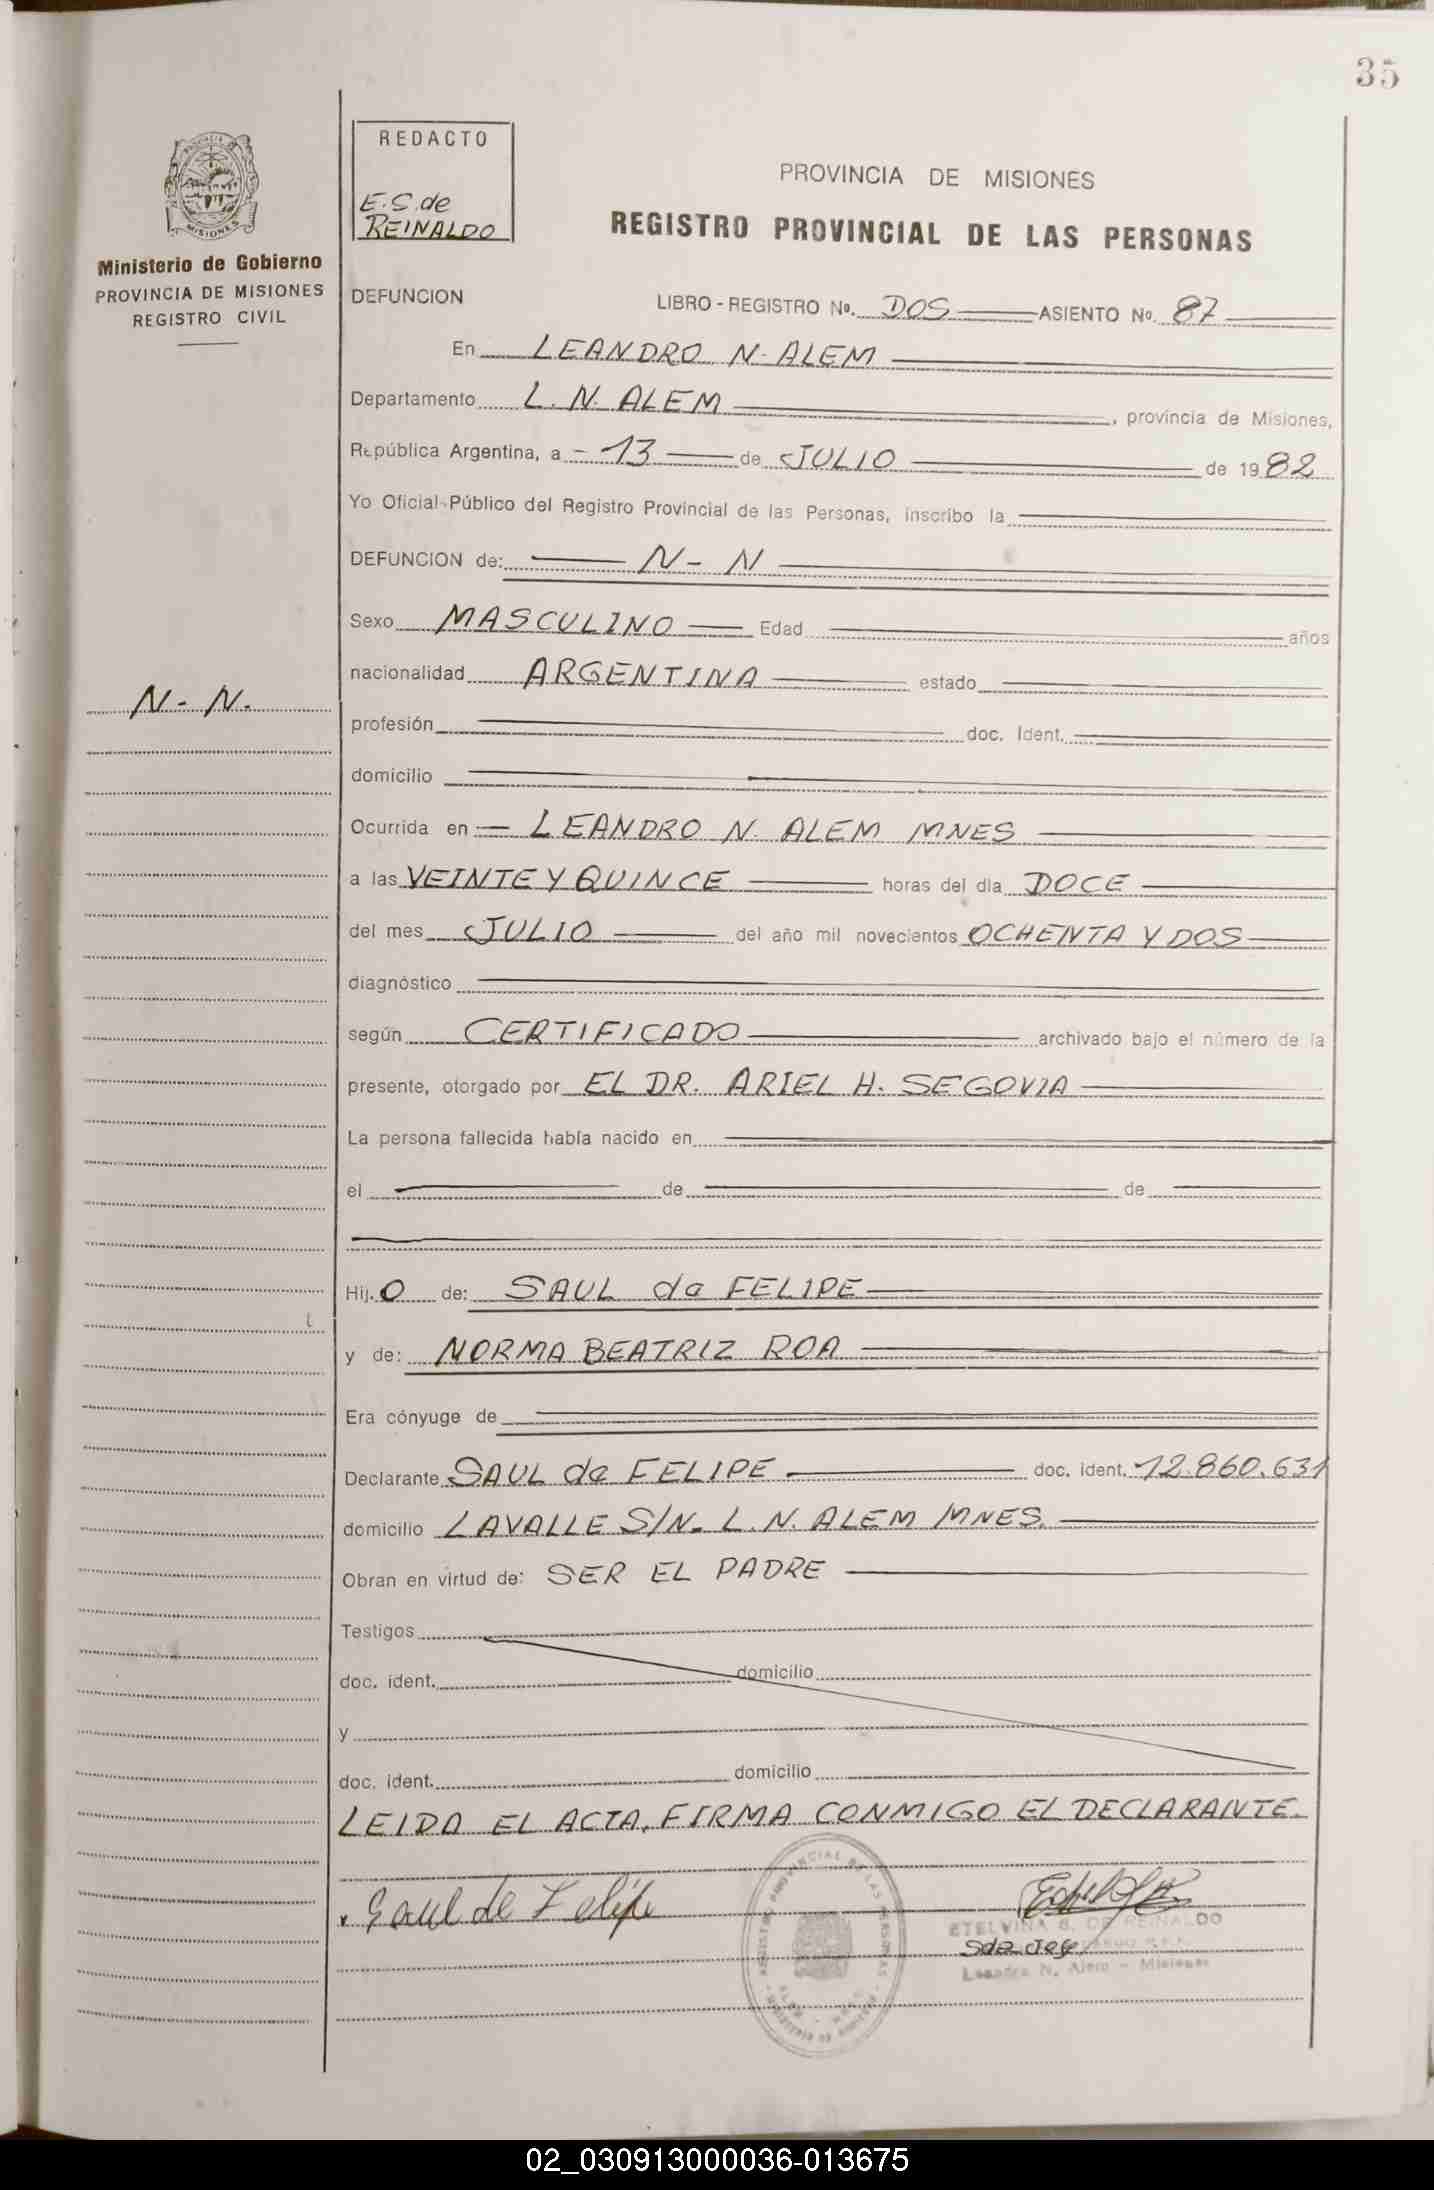 35
REDACTO
E.S. de
REINALDO
PROVINCIA DE MISIONES
REGISTRO PROVINCIAL DE LAS PERSONAS
MISIONES
Ministerio de Gobierno
PROVINCIA DE MISIONES
REGISTRO CIVIL
DEFUNCION LIBRO - REGISTRO No. DOS ASIENTO No. 87
En LEANDRO N. ALEM
Departamento L. N. ALEM, provincia de Misiones,
República Argentina, a - 13 de JULIO de 1982
Yo Oficial Público del Registro Provincial de las Personas, inscribo la
DEFUNCION de: N - N
Sexo MASCULINO Edad años
nacionalidad ARGENTINA estado
N - N.
profesión doc. Ident.
domicilio
Ocurrida en LEANDRO N. ALEM MNES
a las VEINTE Y QUINCE horas del día DOCE
del mes JULIO del año mil novecientos OCHENTA Y DOS
diagnóstico
según CERTIFICADO archivado bajo el número de la
presente, otorgado por EL DR. ARIEL H. SEGOVIA
La persona fallecida había nacido en
el de de
Hij.O de: SAUL da FELIPE
y de: NORMA BEATRIZ ROA
Era cónyuge de
Declarante SAUL de FELIPE doc. ident. 12.860.631
domicilio LAVALLE S/N. L. N. ALEM MNES.
Obran en virtud de: SER EL PADRE
Testigos
doc. ident. domicilio
y
doc. ident. domicilio
LEIDA EL ACTA, FIRMA CONMIGO EL DECLARANTE.
Saul de Felipe
ETELVINA S. DE REINALDO
Leandro N. Alem - Misiones
02_030913000036-013675